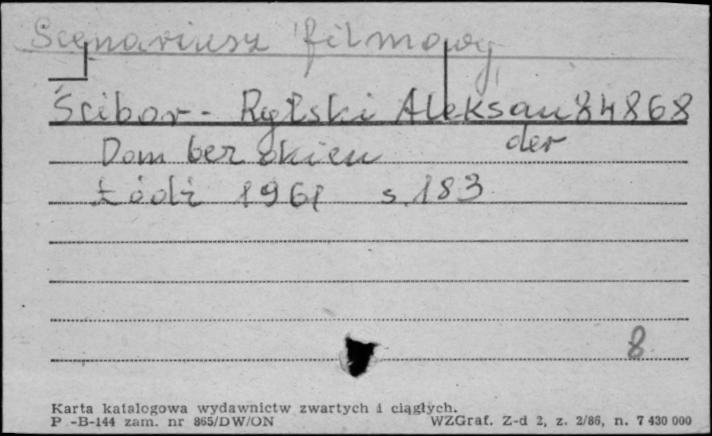 Scenariusz filmowy
Ścibor-Rylski Aleksan 84868
der
Dom bez okien
Łódź 1961 s. 183
8
Karta katalogowa wydawnictw zwartych i ciągłych.
P-B-144 zam. nr 865/DW/ON WZGraf. Z-d 2, z. 2/86, n. 7 430 000